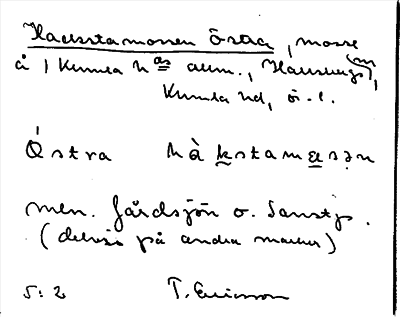 Hackstamossen Östra, mosse
å / Kumla hds allm., Hallsbergs (m),
Kumla hd, ö. l.
Östra hàkstamɷsən
men. fårdsjön o. Sanstjp.
(delvis på andra marker)
5:2 T. Ericsson